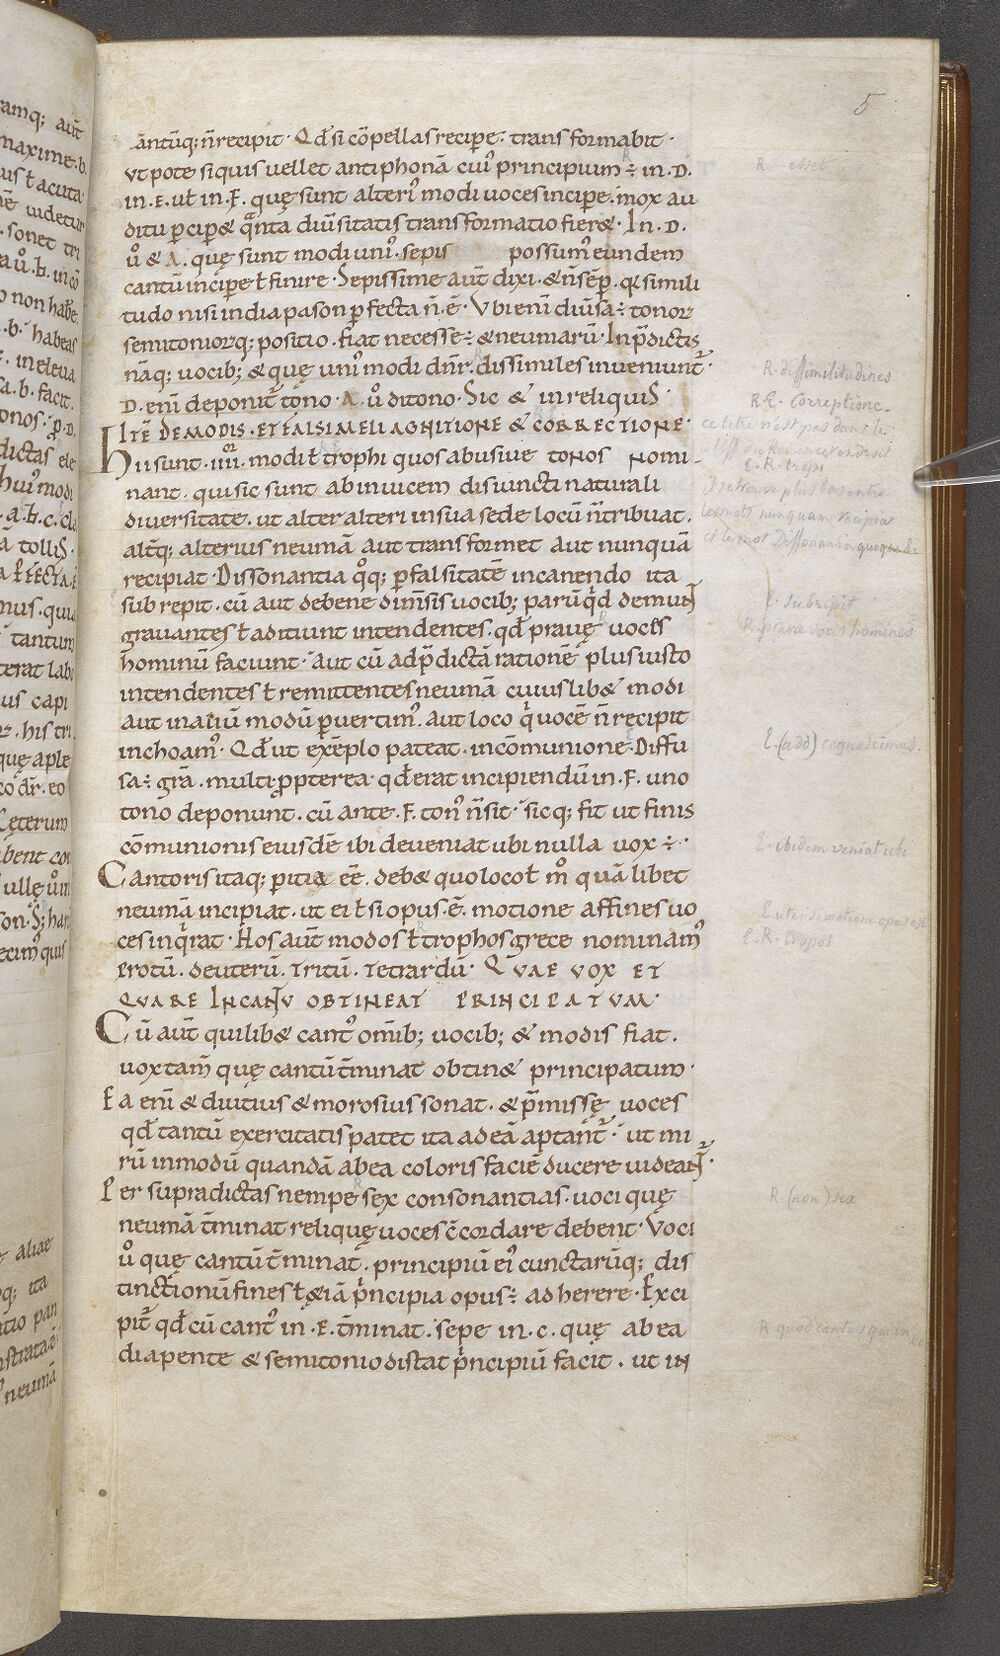 5
antūq; n̄ recipit · Qd̄ si cōpellas recipe · transformabit ·
vt pote si quis uellet antiphonā cui᷒ principium ÷ in · D ·
in · E · ut in · F · quę sunt alteri᷒ modi uoces incipe · mox au
ditu pcipæ qͣnta diūsitatis transformatio fieræ · In · D ·
ů & · A · quę sunt modi uni᷒ · sepis possum᷒ eundem
cantū incipe ł finire · Sepissime aut̄ dixi · & n̄ sēp · qͥ simili
tudo nisi in diapason pfecta n̄ ē · Vbi enī diūsa ÷ tonoꝝ
semitonioꝝq; positio · fiat necesse ÷ & neumarū · In p̄dictis
nāq; uocib; & quę uni᷒ modi dn̄r · dissimiles inveniunt᷑ ·
D · enī deponit tono · A · ů ditono · Sic & in reliquis ·
ITĒ DE MODIS · ET FALSI MELI AGNITIONE & CORRECTIONE ·
Hii sunt · iiii · modi ł trophi quos abusiue tonos nomi-
nant · qui sic sunt ab inuicem disiuncti naturali
diversitate · ut alter alteri in sua sede locū n̄ tribuat ·
altq̄; alterius neumā aut transformet aut nunquā
recipiat · Dissonantia qͦq; p falsitatē in canendo ita
subrepit · cū aut de bene dim̄sis uocib; parū qͥd demunt᷑
gravantes ł aditiunt intendentes · qd̄ pravę uoces
hominū faciunt · Aut cū ad p̄dictā rationē plus iusto
intendentes ł remittentes neumā cuius libæ modi
aut in aliū modū puertim᷒ · aut loco qͥ uocē n̄ recipit
inchoam᷒ · Qd̄ ut exēplo pateat · in cōmunione · Diffu
sa ÷ gr̄a · multi ppterea · qd̄ erat incipiendū in · F · uno
tono deponunt · cū ante · F · ton᷒ n̄ sit · sicq; fit ut finis
cōmunionis eiusdē ibi deveniat ubi nulla uox ÷ ·
Cantoris itaq; pitia eē · debæ quo loco ł mͦ quā libet
neumā incipiat · ut ei ł si opus · ē · motione affines uo
ces inqͥrat · Hos aut̄ modos ł trophos grece nominam᷒
Protū · deuterū · tritū · tetrardū · QVAE VOX ET
QVARE IN CANTV OBTINEAT PRINCIPATVM ·
Cū aut̄ quilibæ cant᷒ om̄ib; uocib; & modis fiat ·
uox tam̄ quę cantū t̄minat obtinæ principatum ·
Ea enī & diutius & morosius sonat · & p̄missę uoces
qd̄ tantū exercitatis patet ita ad eā aptant᷑ · ut mi
rū in modū quandā ab ea coloris faciē ducere uideant᷑ ·
Per supradictas nempe sex consonantias · uoci quę
neumā t̄minat reliquę uoces c̄cordare debent · Voci
ů quę cantū t̄minat · principiū ei᷒ cunctarūq; dis
tinctionū fines ł &iā pͥncipia opus ÷ adherere · Exci
pit᷑ qd̄ cū cant᷒ in · E · t̄minat · sepe in · c · quę ab ea
diapente & semitonio distat pͥncipiū facit · ut in
R. esset
R. dissimilitudines
R E. Correptione
ce titre n'est pas dans le
E. R. tropi
E. subripit
R. pravae vocis homines
E. (add) cognoscimus.
E. ibidem veniat ubi
E. R. tropos
R. (non) sex